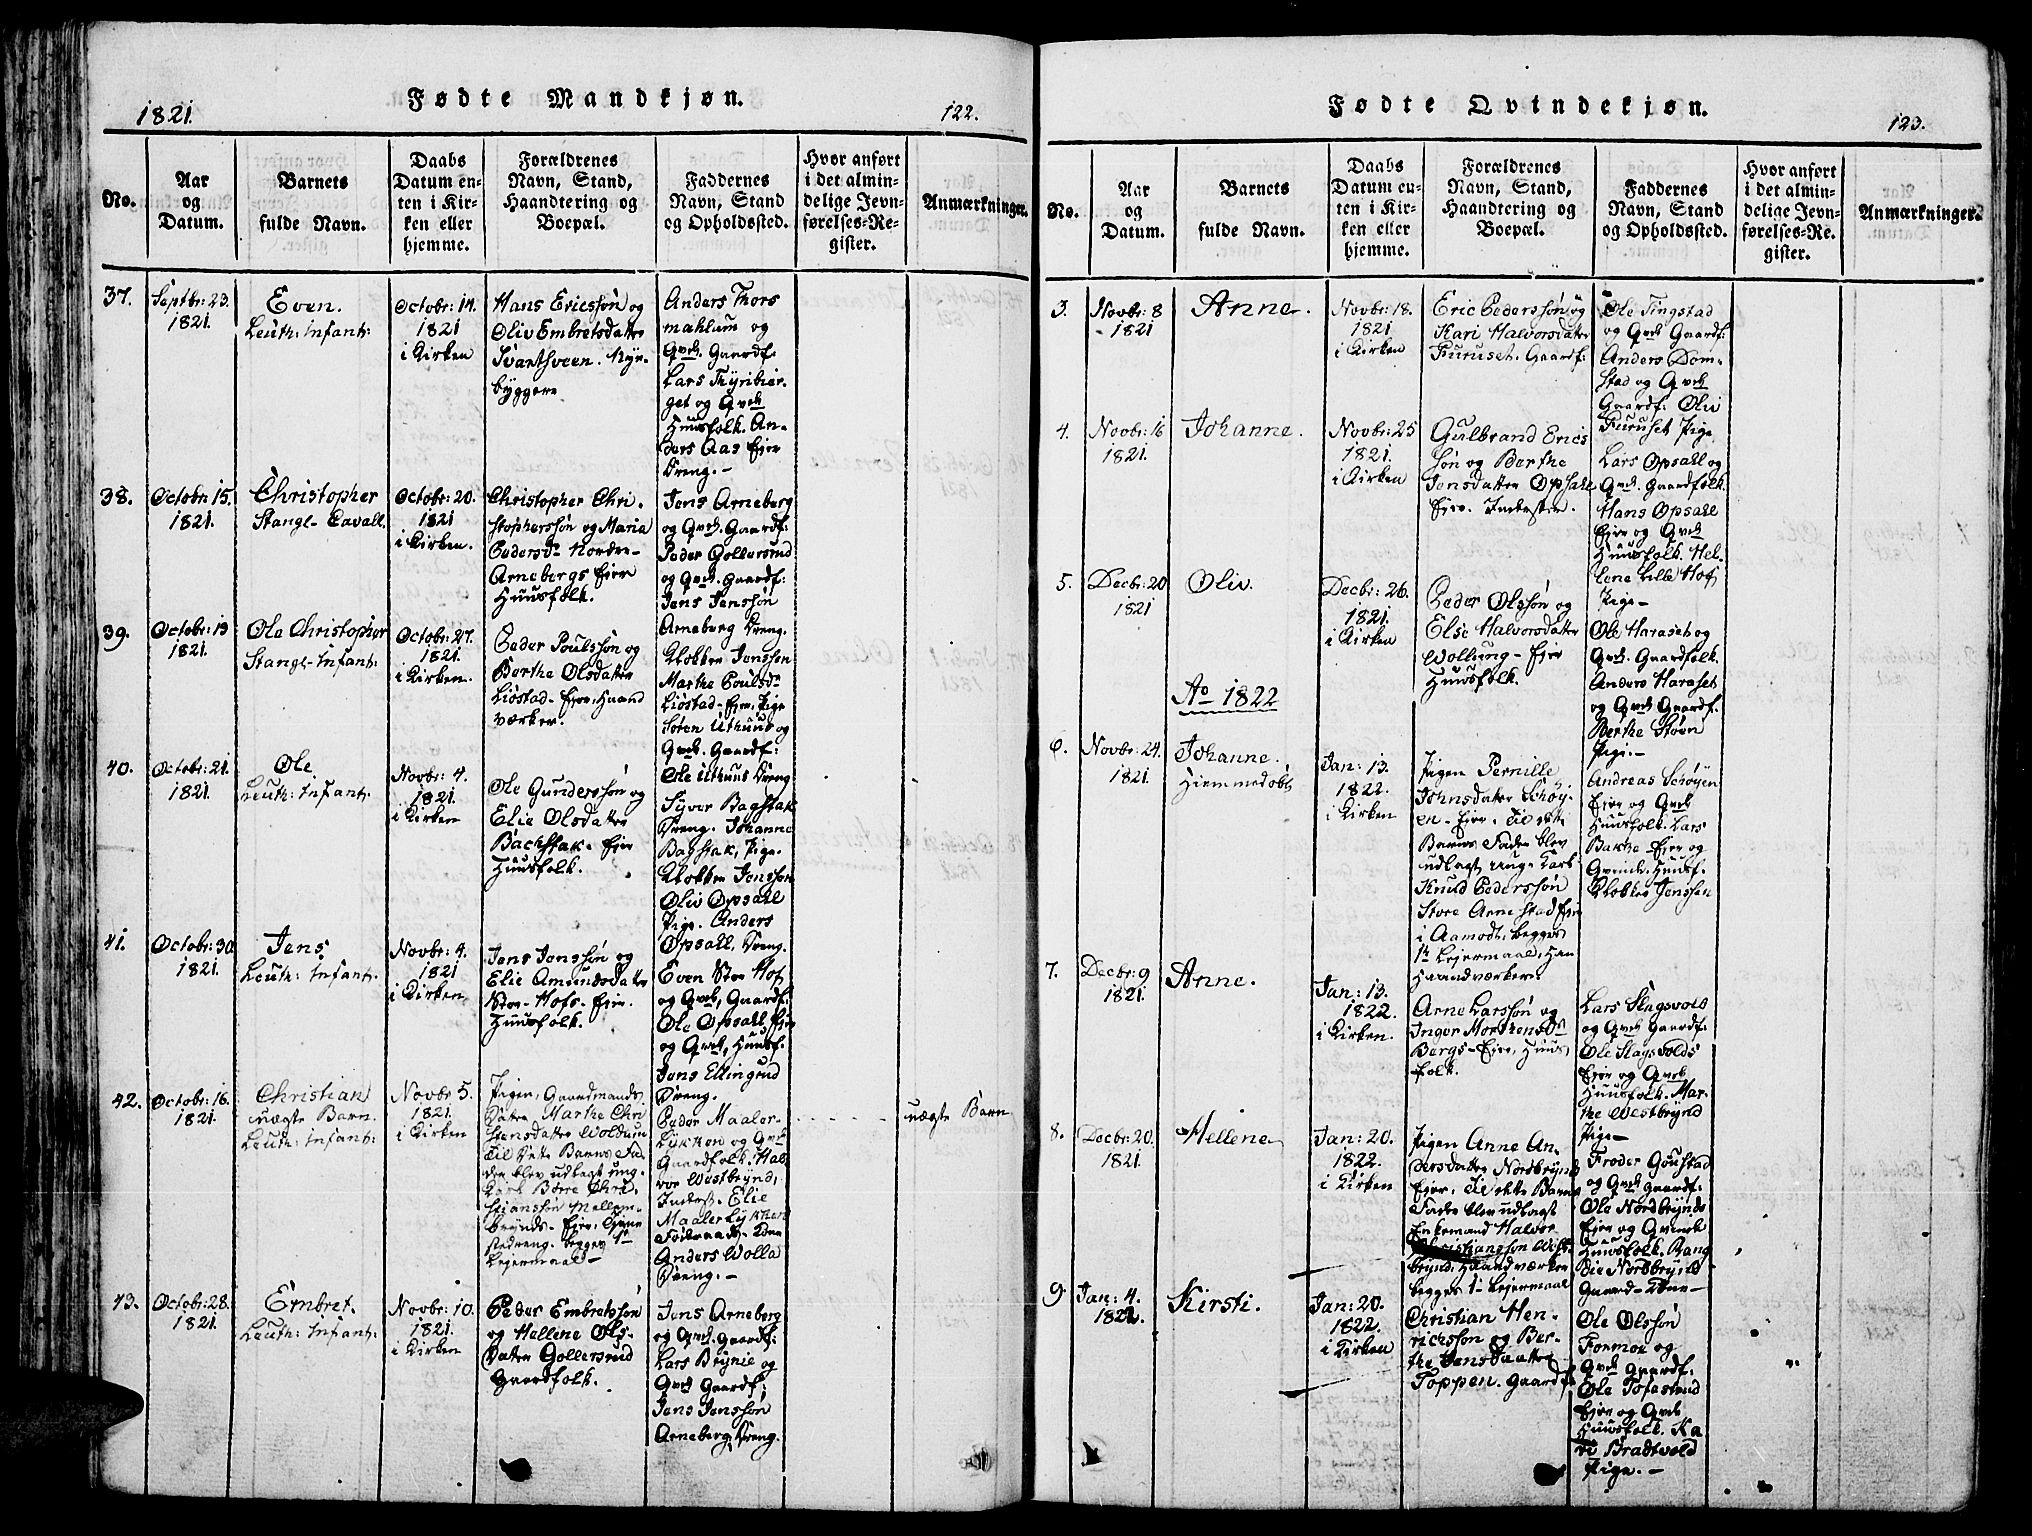 1821.
Fødte Mandkjøn.
122.
No.
Aar
og
Datum.
Barnets
fulde Navn.
Daabs
Datum en-
ten i Kir-
ken eller
hjemme.
Forældrenes
Navn, Stand,
Haandtering og
Boepæl.
Faddernes
Navn, Stand
og Opholdssted.
Hvor anført
i det almin-
delige Jevn-
førelses-Re-
gister.
Anmærkninger.
37.
Septbr: 23.
1821.
Even.
Leuth: Infant:
October: 14.
1821
i Kirken
Hans Ericssøn og
Oliv Embretsdatter
Svartsveen. Nye-
byggere
Anders Thors
mahlum og
Qvde Gaardf.
Lars Thyribier-
get og Qvde
Huusfolk. An-
ders Aas Eier
Dreng. -
38.
Octobr: 15.
1821.
Christopher
Stangl- Cavall.
October: 20.
1821
i Kirken.
Christopher Chri-
stopherssøn og Maria
Pedersdr Nordre-
Arnebergs Eier
Huusfolk.
Jens Arneberg
og Qvde Gaardf:
Peder Gollersrud
og Qvde. Gaardf:
Jens Jenssøn
Arneberg Dreng.
39.
Octobr: 19
1821.
Ole Christopher
Stangl- Infant:
Octobr: 27.
1821.
i Kirken.
Peder Poulssøn og
Berthe Olsdatter
Liøstad- Eier, Haand
værker.
Klokker Jenssen
Marthe Poulsdr
Liøstad- Eier, Pige
Søren Uthuus og
Qvde. Gaardf:
Ole Uthuus Dreng
40.
Octobr: 21.
1821.
Ole.
Leuth: Infant:
Novbr: 4.
1821.
i Kirken
Ole Gunderssøn og
Elie Olsdatter
Bachstak- Eier
Huusfolk.
Syver Bagstak
Dreng. Johanne
Bagstak, Pige.
Klokker Jenssen
Oliv Opsahl
Pige. Anders
Opsahl. Dreng.
41.
Octobr: 30
1821.
Jens.
Leuth: Infant:
Novbr: 4.
1821
i Kirken
Jens Jenssøn og
Elie Amundsdatter
Stor- Hofs- Eier.
Huusfolk.
Even Stor Hof
og Qvde, Gaardf:
Ole Opsahl Eier
og Qvde, Huusf.
Jens Ellingrud
Dreng.
42.
Octobr: 16.
1821.
Christian
uægte Barn.
Leuth: Infant:
Novbr: 5.
1821.
i Kirken
Pigen, Gaardmands
Datter Marthe Chri
stensdatter Woldum
Til dette Barns Fa-
der blev udlagt ung-
karl Børre Chri-
stianssøn Mellem-
brynds- Eier, Tiene
stedreng. begges 1te
Leiermaal-
Peder Maaler-
lykken og Qvde
Gaardfolk. Hal-
vor Westbrynd,
Inderst. Elie
Maalerlykken
Anders Wolla
Dreng. -
uægte Barn
43.
Octobr: 28.
1821.
Embret.
Leuth: Infant:
Novbr: 10.
1821.
i Kirken
Peder Embretssøn
og Hellene Ols-
datter Gollersrud
Gaardfolk.
Jens Arneberg
og Qvde Gaardf:
Lars Brynie og
Qvde Gaardf;
Jens Jenssøn
Arneberg, Dreng.
Fødte Qvindekjøn.
123.
No.
Aar
og
Datum.
Barnets
fulde Navn.
Daabs
Datum en-
ten i Kir-
ken eller
hjemme.
Forældrenes
Navn, Stand,
Haandtering og
Boepæl.
Faddernes
Navn, Stand
og Opholdssted.
Hvor anført
i det almin-
delige Jevn-
førelses-Re-
gister.
Anmærkninger.
3.
Novbr: 8
1821
Anne.
Novbr: 18.
1821
i Kirken
Eric Pederssøn og
Kari Halvorsdatter
Furuset. Gaardf:
Ole Tingstad
og Qvde Gaardf:
Anders Dom-
stad og Qvde
Gaardf: Oliv
Furuset Pige
4.
Novbr: 16
1821.
Johanne.
Novbr: 25
1821.
i Kirken
Gulbrand Erics
søn og Berthe
Jensdatter Opsahl
Eier. Inderster.
Lars Opsahl og
Qvde. Gaardfolk.
Hans Opsahl
Eier og Qvde
Huusfolk. Hel-
lene Lille Hof
Pige-
5.
Decbr: 20
1821
Oliv.
Decbr: 26.
1821.
i Kirken
Peder Olssøn og
Else Halvorsdatter
Wollung- Eier
Huusfolk.
Ole Haraset og
Qvde. Gaardfolk.
Anders Haraset
og Qvde Gaardf.
Berthe Støen
Pige. -
Ao 1822
6.
Novbr: 24.
1821.
Johanne.
Hiemmedøbt
Jan: 13.
1822.
i Kirken
Pigen Pernille
Johnsdatter Schøy-
en- Eier. Til dette
Barns Fader blev
udlagt unge Karl
Knud Pederssøn
Store Arnestad Eier
i Aamodt, begges
1te Leiermaal, Han
Haandværker.
Andreas Schøyen
Eier og Qvde
Huusfolk. Lars
Bakke- Eier og
Qvinde. Huusf.
Klokker Jenssen
7.
Decbr: 9
1821.
Anne.
Jan: 13.
1822.
i Kirken.
Arne Larssøn og
Inger Morthensdr
Bergs- Eier, Huus
folk.
Lars Slagsvold
og Qvde Gaardf.
Ole Slagsvolds
Eier og Qvde
Huusfolk. Mar-
the Westbrynd
Pige-
8.
Decbr: 20.
1821.
Hellene
Jan: 20.
1822.
i Kirken
Pigen Anne An-
dersdatter Nordbrynd
Eier. Til dette Barns
Fader blev udlagt
Enkemand Halvor
Christianssøn West-
brynd. Haandværker
begges 1te Leiermaal
Froder Goustad
og Qvde Gaardf.
Ole Nordbrynds
Eier og Qvinde
Huusfolk. Rang
die Nordbrynd
Gaard- Kone-
9
Jan: 4.
1822.
Kirsti.
Jan: 20.
1822.
i Kirken
Christian Hen-
richssøn og Ber-
the Jensdatter
Toppen. Gaardf
Ole Olssøn
Formoe og
Qvde Gaardf:
Ole Tofastrud
Eier og Qvde
Huusfolk. Ka
ri Bradtvold
Pige. -